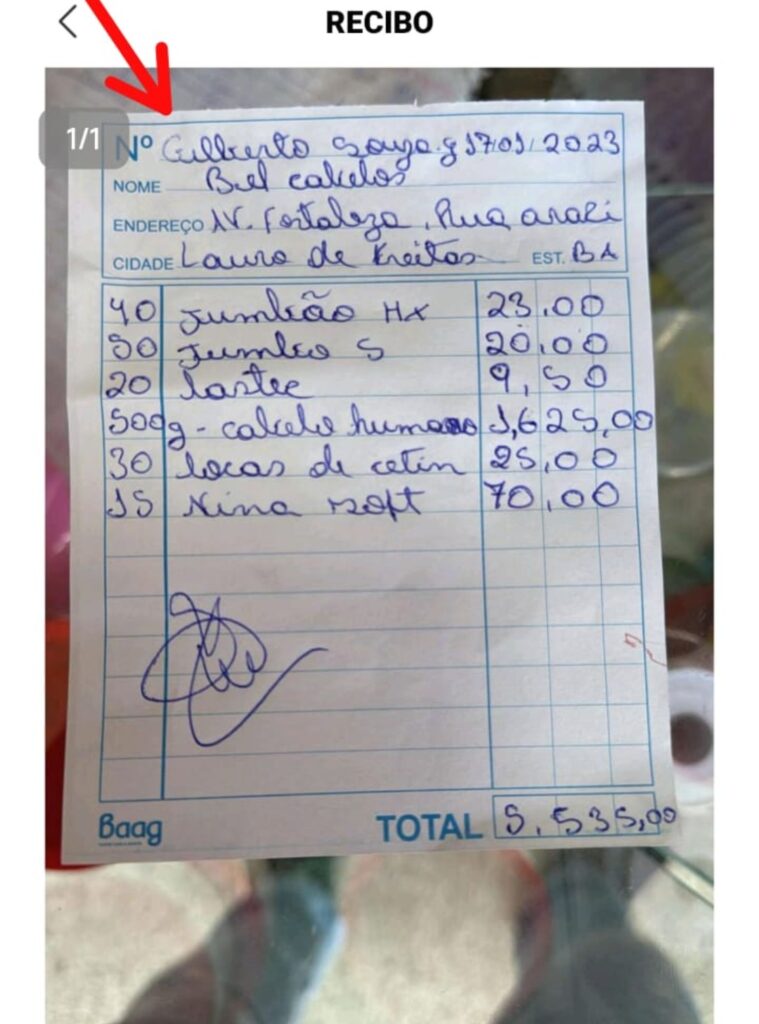 RECIBO
1/1
Nº Gilberto Souza 17/01/2023
NOME Biel cabelos
ENDEREÇO AV. Fortaleza, Rua
CIDADE Lauro de Freitas EST. BA
40 Jumbão HX 23,00
50 Jumbo S 20,00
20 lastec 9,50
500g - cabelo humano 1,625,00
30 tocas de cetin 25,00
15 Nina soft 70,00
Baag
TOTAL 5.535,00